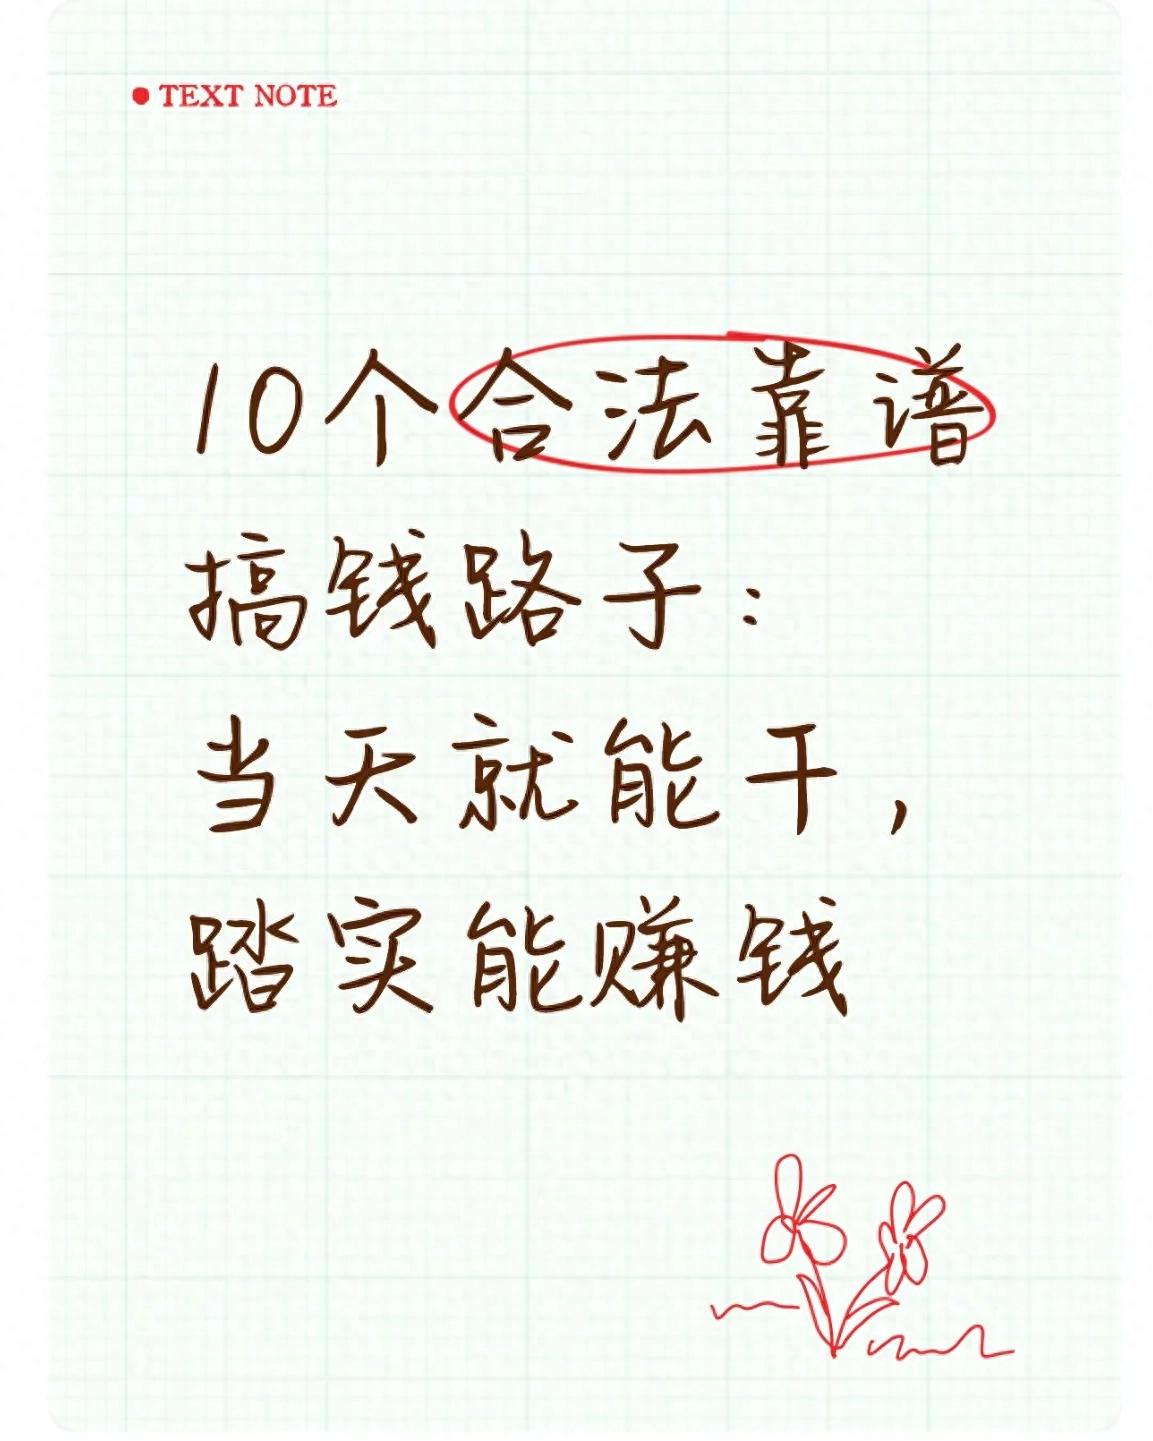 TEXT NOTE
10个合法靠谱
搞钱路子：
当天就能干，
踏实能赚钱